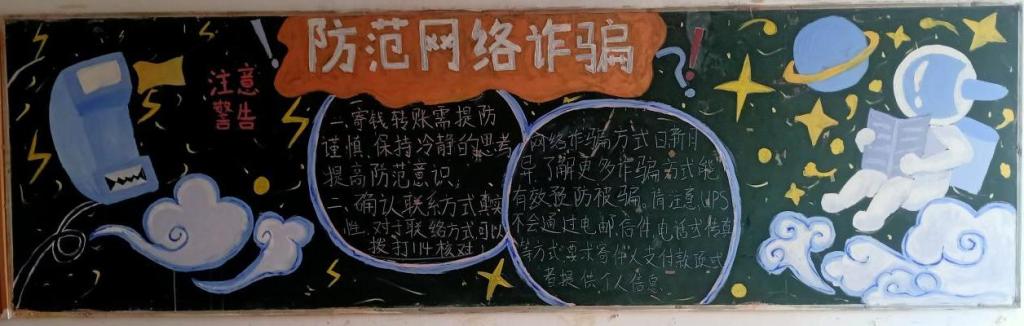 防范网络诈骗
注意
警告
一寄钱转账需提防
谨慎,保持冷静的思考
提高防范意识,
二、确认联系方式真实
性,对于联络方式可以
拨打114核对
网络诈骗方式日新月
异,了解更多诈骗方式能
有效预防被骗,肯注意UPS
不会通过电邮、信件,电话或传真
等方式要求寄件人支付款项或
者提供个人信息